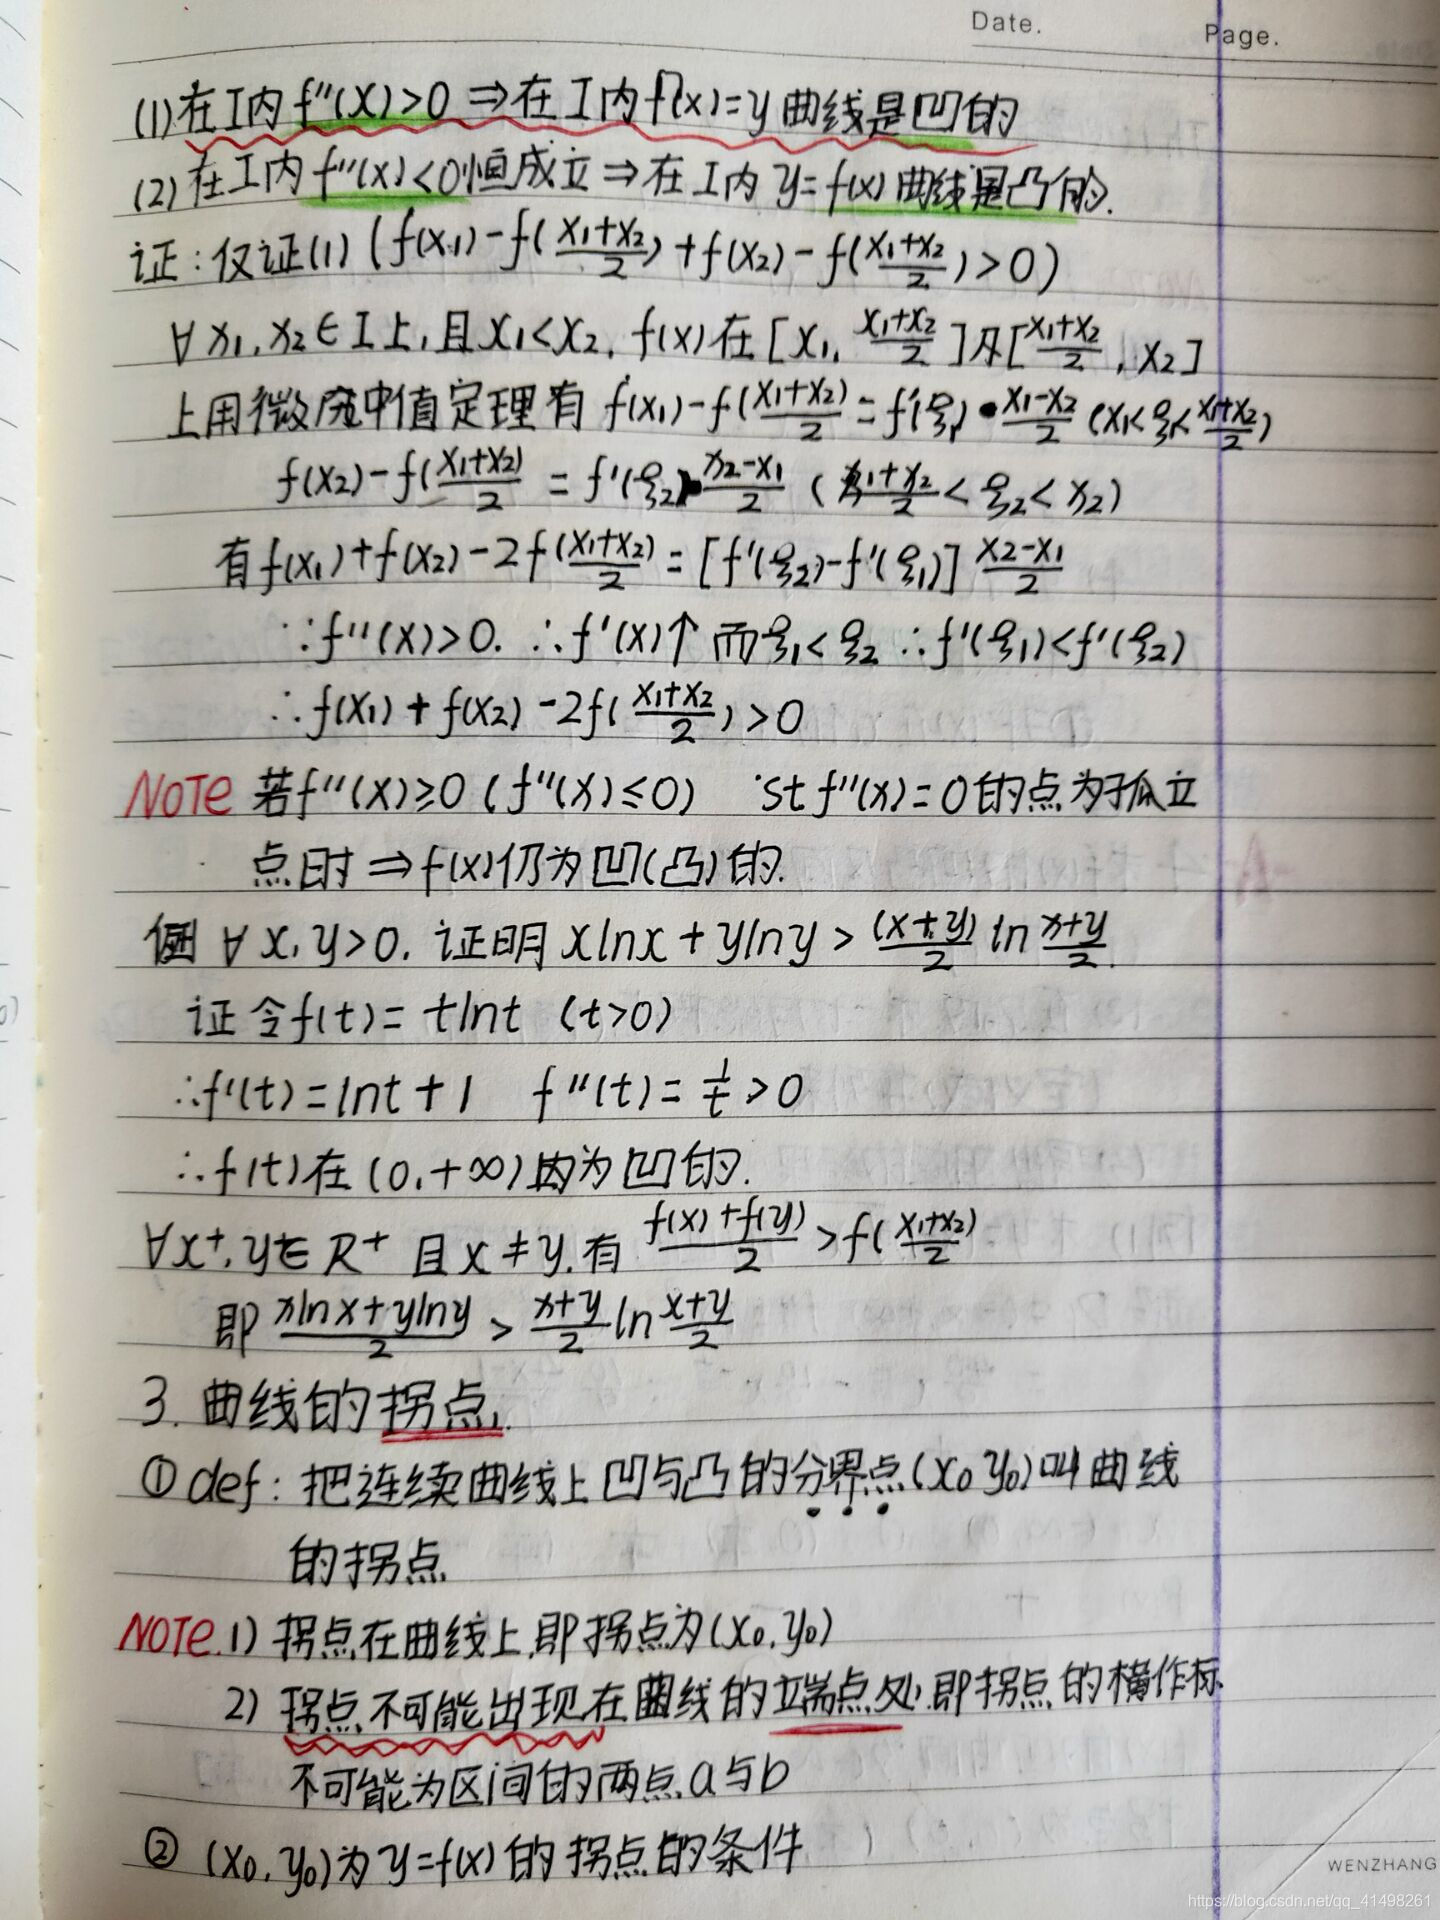 Date.
Page.
(1)在I内f''(x)>0⇒在I内f(x)=y曲线是凹的
(2)在I内f''(x)<0恒成立⇒在I内 y=f(x)曲线是凸的.
证:仅证(1) (f(x₁)-f(\frac{x₁+x₂}{2})+f(x₂)-f(\frac{x₁+x₂}{2})>0)
∀x₁,x₂∈I上,且x₁<x₂, f(x)在[x₁, \frac{x₁+x₂}{2}]及[\frac{x₁+x₂}{2}, x₂]
上用微分中值定理有 f(x₁)-f(\frac{x₁+x₂}{2})=f'(ξ₁)•\frac{x₁-x₂}{2} (x₁<ξ₁<\frac{x₁+x₂}{2})
f(x₂)-f(\frac{x₁+x₂}{2}) = f'(ξ₂)•\frac{x₂-x₁}{2} (\frac{x₁+x₂}{2}<ξ₂<x₂)
有f(x₁)+f(x₂)-2f(\frac{x₁+x₂}{2})=[f'(ξ₂)-f'(ξ₁)]\frac{x₂-x₁}{2}
∵f''(x)>0. ∴f'(x)↑ 而ξ₁<ξ₂ ∴f'(ξ₁)<f'(ξ₂)
∴f(x₁)+f(x₂)-2f(\frac{x₁+x₂}{2})>0
NOTE 若f''(x)≥0 (f''(x)≤0) st f''(x)=0的点为孤立
点时⇒f(x)仍为凹(凸)的.
例 ∀x,y>0. 证明 xlnx+ylny>\frac{(x+y)}{2}ln\frac{x+y}{2}.
证 令f(t)=tlnt (t>0)
∴f'(t)=lnt+1 f''(t)=\frac{1}{t}>0
∴f(t)在(0,+∞)内为凹的.
∀x⁺,y∈R⁺ 且x≠y.有 \frac{f(x)+f(y)}{2}>f(\frac{x₁+x₂}{2})
即 \frac{xlnx+ylny}{2}>\frac{x+y}{2}ln\frac{x+y}{2}
3. 曲线的拐点.
① def: 把连续曲线上凹与凸的分界点(x₀ y₀)叫曲线
的拐点
NOTE.1) 拐点在曲线上,即拐点为(x₀,y₀)
2) 拐点不可能出现在曲线的端点处,即拐点的横作标
不可能为区间的两点a与b
② (x₀,y₀)为y=f(x)的拐点的条件
WENZHANG
https://blog.csdn.net/qq_41498261